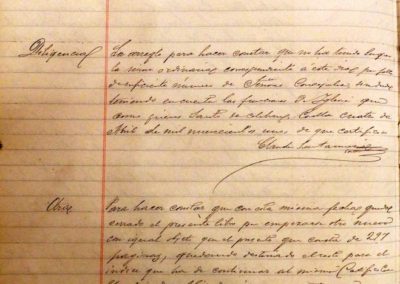 Diligencia La arreglo para hacer constar que no ha tenido lugar
la sesion ordinaria correspondiente á este dia por falta
de suficiente número de Señores Concejales
teniendo en cuenta las funciones de Iglesia que
como jueves Santo se celebran. cuatro de
Abril de mil novecientos uno, de que certifico
Otra Para hacer constar que con esta misma fecha queda
cerrado el presente libro por empezarse otro nuevo
con igual que el presente que consta de 297
paginas, quedando destinado el resto para el
indice que ha de continuar al mismo Certifico